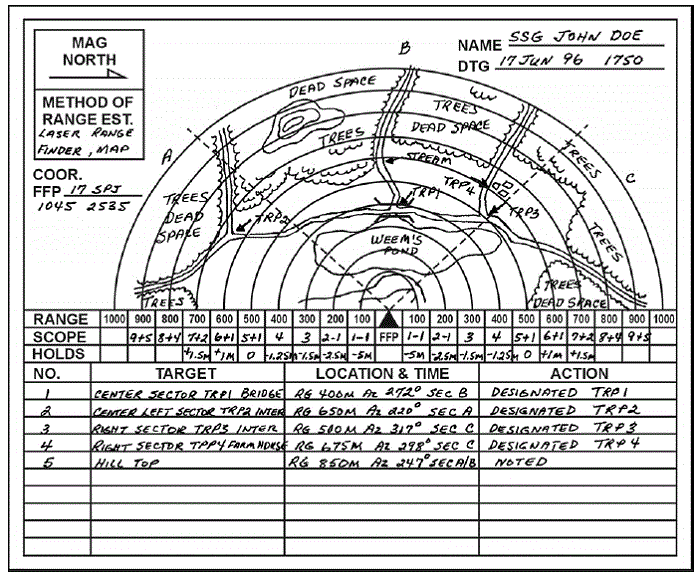 MAG
NORTH
METHOD OF
RANGE EST.
LASER RANGE
FINDER, MAP
COOR.
FFP 17 SPJ
1045 2535
NAME SSG JOHN DOE
DTG 17 JUN 96 1750
A
B
C
DEAD SPACE
TREES
TREES
DEAD SPACE
TREES
STREAM
TREES
DEAD SPACE
TRP2
TRP1
TRP4
TRP3
WEEM'S
POND
TREES
TREES
TREES
DEAD SPACE
RANGE 1000 900 800 700 600 500 400 300 200 100 100 200 300 400 500 600 700 800 900 1000
SCOPE 9+5 8+4 7+2 6+1 5+1 4 3 2-1 1-1 FFP 1-1 2-1 3 4 5+1 6+1 7+2 8+4 9+5
HOLDS +1.5M +1M 0 -1.25M -1.5M -2.5M -5M -5M -2.5M -1.5M -1.25M 0 +1M +1.5M
NO. TARGET LOCATION & TIME ACTION
1 CENTER SECTOR TRP1 BRIDGE RG 400M AZ 272° SEC B DESIGNATED TRP1
2 CENTER LEFT SECTOR TRP2 INTER RG 650M AZ 220° SEC A DESIGNATED TRP2
3 RIGHT SECTOR TRP3 INTER RG 500M AZ 317° SEC C DESIGNATED TRP3
4 RIGHT SECTOR TRP4 FARM HORSE RG 675M AZ 298° SEC C DESIGNATED TRP4
5 HILL TOP RG 850M AZ 247° SEC A/B NOTED